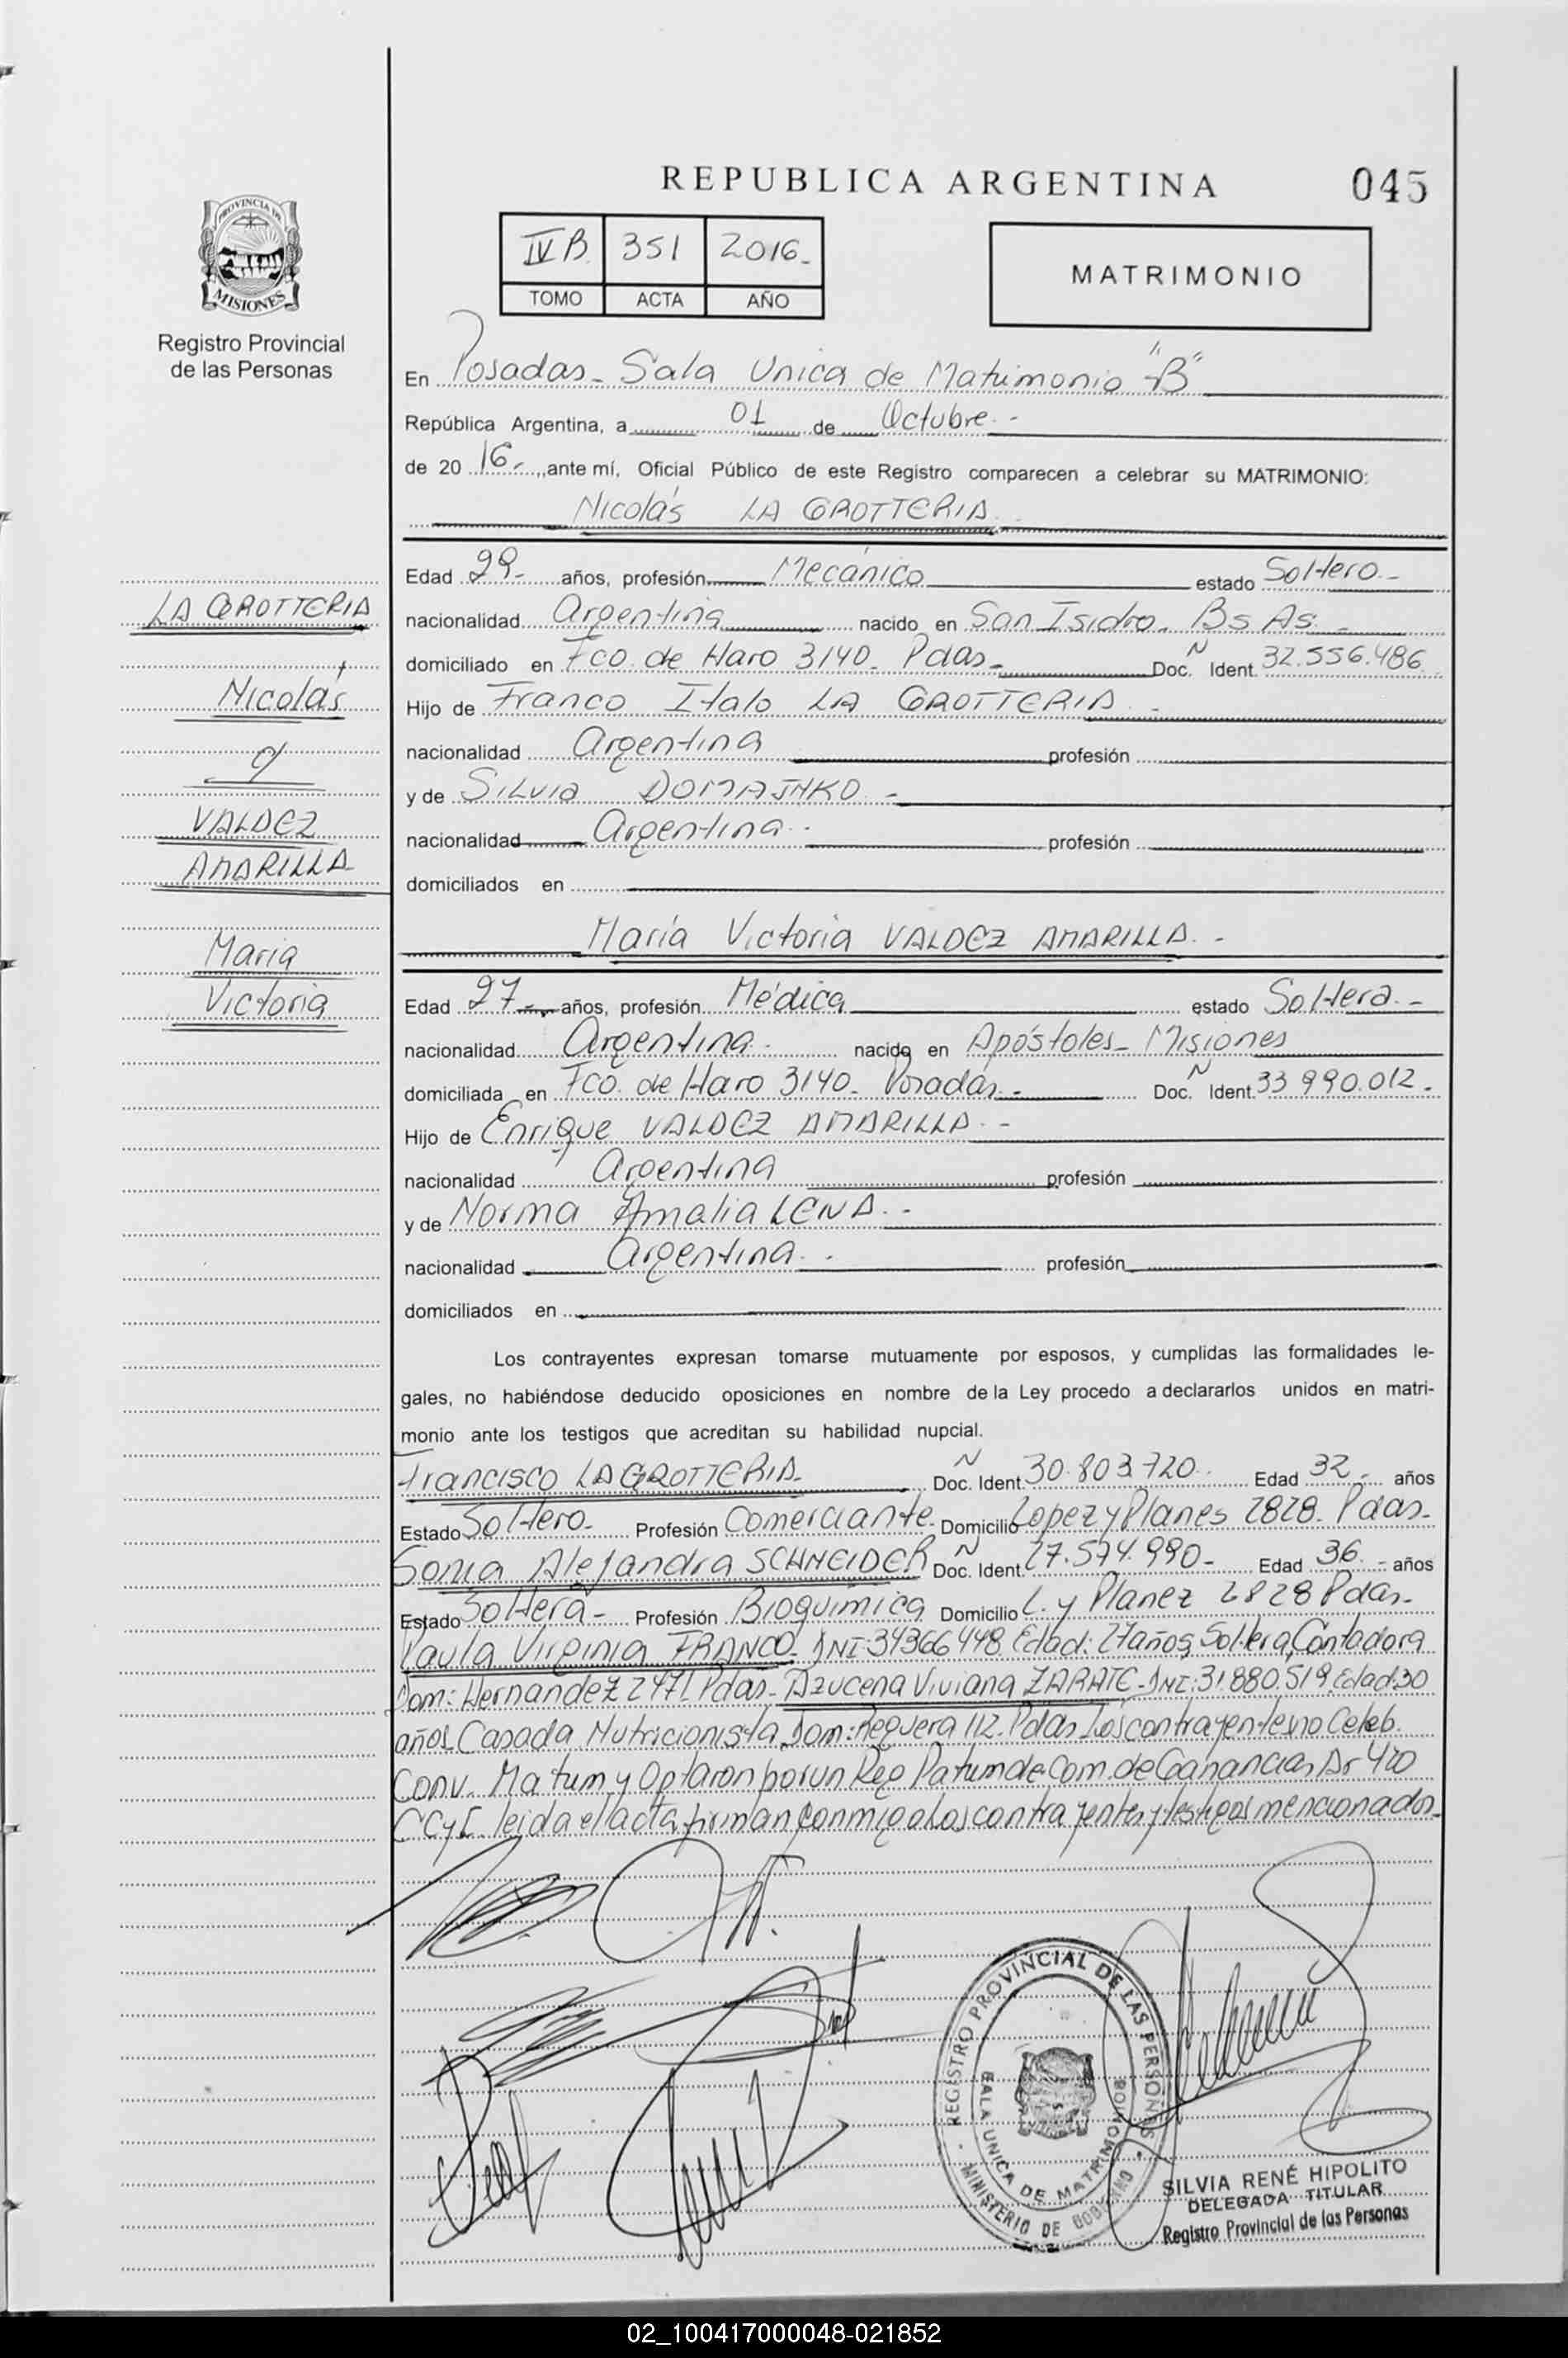 REPUBLICA ARGENTINA
045
PROVINCIA DE
MISIONES
Registro Provincial
de las Personas
IV B. 351 2016-
TOMO ACTA AÑO
MATRIMONIO
En Posadas - Sala Unica de Matrimonio "B"
República Argentina, a 01 de Octubre -
de 20 16- ,ante mí, Oficial Público de este Registro comparecen a celebrar su MATRIMONIO:
Nicolás LA GROTTERIA
LA GROTTERIA
Nicolás
c/
VALDEZ
AMARILLA
Maria
Victoria
Edad 29- años, profesión Mecánico estado Soltero -
nacionalidad Argentina nacido en San Isidro - Bs As. -
domiciliado en Fco. de Haro 3140 - Pdas - Doc. N Ident. 32.556.486
Hijo de Franco Italo LA GROTTERIA -
nacionalidad Argentina profesión
y de Silvia DOMAJNKO -
nacionalidad Argentina - profesión
domiciliados en
María Victoria VALDEZ AMARILLA. -
Edad 27- años, profesión Médica estado Soltera -
nacionalidad Argentina - nacida en Apóstoles - Misiones
domiciliada en Fco. de Haro 3140 - Posadas - Doc. N Ident. 33.990.012 -
Hijo de Enrique VALDEZ AMARILLA - -
nacionalidad Argentina profesión
y de Norma Amalia LENA. -
nacionalidad Argentina - - profesión
domiciliados en
Los contrayentes expresan tomarse mutuamente por esposos, y cumplidas las formalidades le-
gales, no habiéndose deducido oposiciones en nombre de la Ley procedo a declararlos unidos en matri-
monio ante los testigos que acreditan su habilidad nupcial.
Francisco LA GROTTERIA - Doc. N Ident. 30.803.720 - Edad 32 - años
Estado Soltero - Profesión Comerciante - Domicilio Lopez y Planes 2828 - Pdas -
Sonia Alejandra SCHNEIDER Doc. N Ident. 27.574.990 - Edad 36 - años
Estado Soltera - Profesión Bioquímica Domicilio L. y Planez 2828 Pdas -
Paula Virginia FRANCO - DNI: 34366448 Edad: 27 años, Soltera, Contadora
Dom: Hernandez 2471 Pdas - Azucena Viviana ZARATE - DNI: 31.880.519, Edad: 30
años Casada Nutricionista Dom: Reguera 112. Pdas Los contrayentes no Celeb.
Conv. Matrim y Optaron por un Reg Patrim de Com. de Ganancias Ar 420
CCyC leida el acta firman conmigo los contrayentes y testigos mencionados -
REGISTRO PROVINCIAL DE LAS PERSONAS
SALA UNICA DE MATRIMONIO
MINISTERIO DE GOBIERNO
SILVIA RENÉ HIPOLITO
DELEGADA TITULAR
Registro Provincial de las Personas
02_100417000048-021852